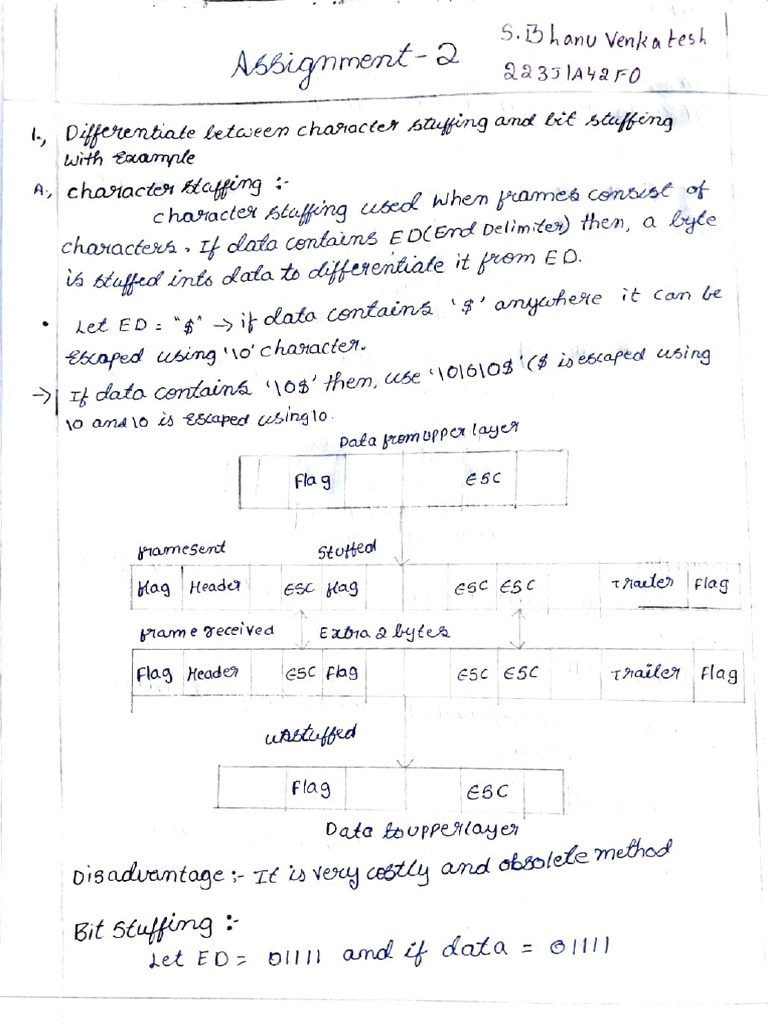 Assignment-2
S.Bhanu Venkatesh
223J1A42F0
1., Differentiate between character stuffing and bit stuffing
with Example
A., character staffing :-
character stuffing used when frames consist of
characters. If data contains ED(End Delimiter) then, a byte
is stuffed into data to differentiate it from ED.
• Let ED = "$" → if data contains '$' anywhere it can be
Escaped using '\0' character.
→ If data contains '\0$' then, use '\0\0\0$' ($ is escaped using
\0 and \0 is Escaped using \0.
Data from upper layer
Flag ESC
frame sent Stuffed
flag Header ESC flag ESC ESC Trailer Flag
frame received Extra 2 bytes
Flag Header ESC Flag ESC ESC Trailer Flag
unstuffed
Flag ESC
Data to upper layer
Disadvantage :- It is very costly and obsolete method
Bit Stuffing :-
Let ED = 01111 and if data = 01111